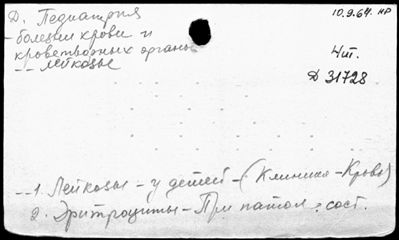 Д. Педиатрия
10.9.64. НР
- болезни крови и
кроветворных органов
-- лейкозы
Чт.
Д 31728
-- 1. Лейкозы - у детей - (Клиника - Кровь)
2. Эритроциты - При патол. сост.